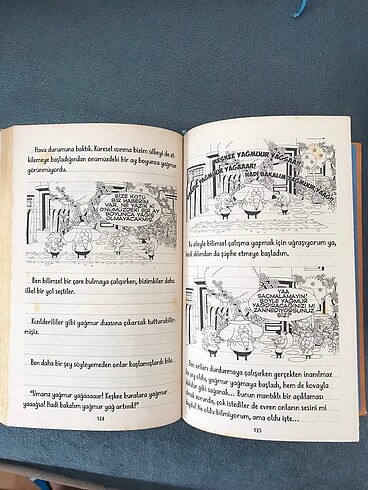 Hava durumuna baktık. Küresel ısınma bizim ülkeyi de et-
kilemeye başladığından önümüzdeki bir ay boyunca yağmur
görünmüyordu.
SİZE KÖTÜ
BİR HABERİM
VAR. NE YAZIK Kİ
ÖNÜMÜZDEKİ BİR AY
BOYUNCA YAĞIŞ
OLMAYACAKMIŞ.
Ben bilimsel bir çare bulmaya çalışırken, bizimkiler daha
ilkel bir yol seçtiler.
Kızılderililer gibi yağmur duasına çıkarsak tutturabilir-
mişiz.
Ben daha bir şey söyleyemeden onlar başlamışlardı bile.
"Umarız yağmur yağaaaaar! Keşkee buralara yağmur
yaaağsa! Hadi bakalım yağmur yağ artııık!"
134
KEŞKEE YAĞMUUR YAĞSA!!!
YAĞMUUR YAĞSAAR!
HADİ BAKALIM
Bu aileyle bilimsel çalışma yapmak için uğraşıyorum ya,
kendi aklımdan da şüphe etmeye başladım.
YAA
SAÇMALAMAYIN!
BÖYLE YAĞMUR
YAĞDIRACAĞINIZI MI
ZANNEDİYORSUNUZ
SİZ?
Ben onları durdurmaya çalışırken gerçekten inanılmaz
bir şey oldu, yağmur yağmaya başladı, hem de kovayla
döküler gibi sağanak... Bunun mantıklı bir açıklaması
olmak zorunda, çok istediler de evren onların sesini mi
duydu? Ne oldu bilmiyorum, ama oldu işte...
135